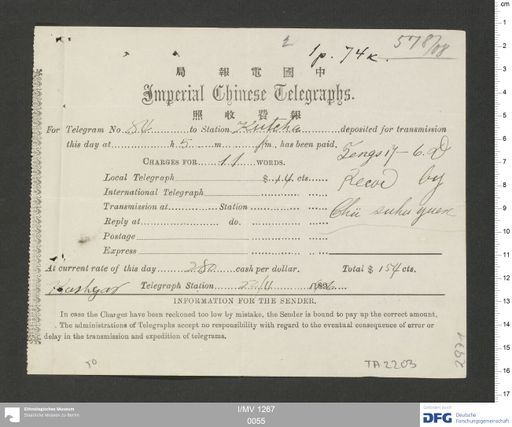 2
1p. 74к. 578/08
局 報 電 國 中
Imperial Chinese Telegraphs.
照 收 費 報
For Telegram No. 84 to Station Kutcha deposited for transmission
this day at h 5 m pm, has been paid.
CHARGES FOR 11 WORDS.
Local Telegraph $ .14 cts.
International Telegraph
Transmission at Station
Reply at do.
Postage
Express
Tengs 17 - 6.
Recd by
Chü
At current rate of this day 280 cash per dollar. Total $ 154 cts.
Kashgar Telegraph Station 22/4
INFORMATION FOR THE SENDER.
In case the Charges have been reckoned too low by mistake, the Sender is bound to pay up the correct amount.
The administrations of Telegraphs accept no responsibility with regard to the eventual consequence of error or
delay in the transmission and expedition of telegrams.
TA 2203
Ethnologisches Museum
Staatliche Museen zu Berlin
I/MV 1267
0055
Gefördert durch
DFG Deutsche
Forschungsgemeinschaft
cm
1
2
3
4
5
6
7
8
9
10
11
12
13
14
15
16
17